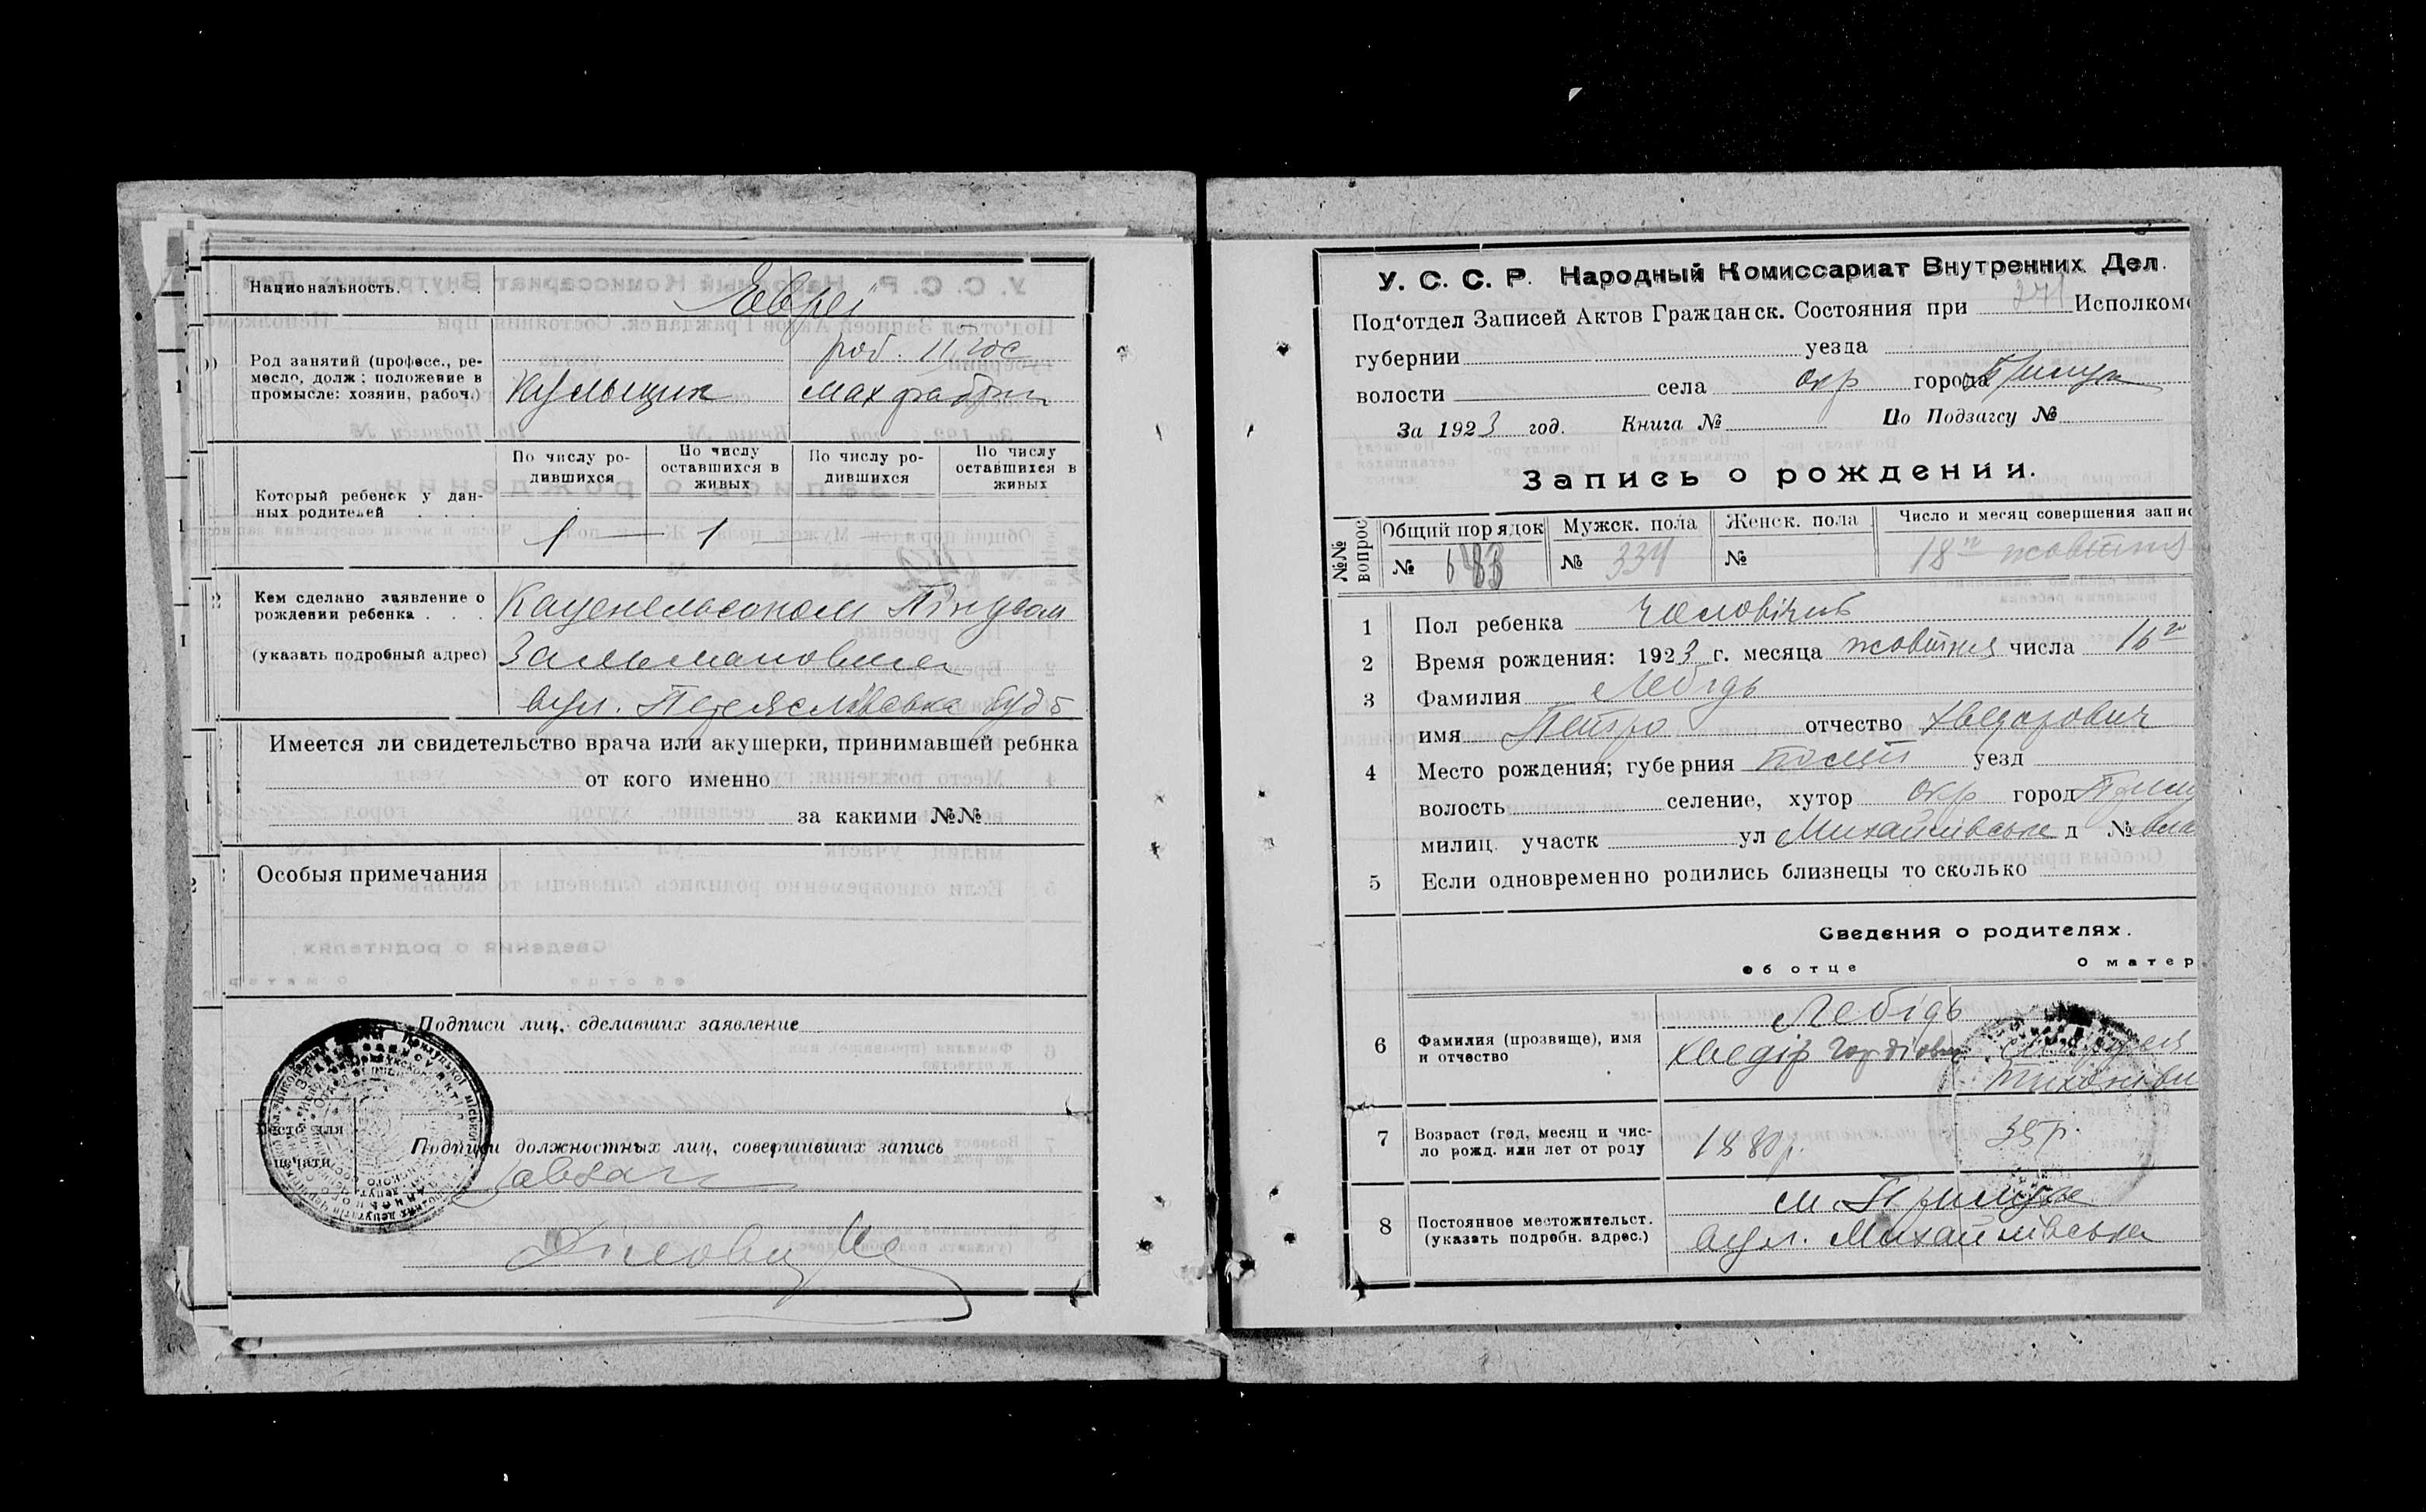 Национальность. . . . Євреї
Род занятий (професс., ре-
месло, долж; положение в
промысле: хозяин, рабоч.)
роб. II гос
мах фабрики
По числу ро-
дившихся
По числу
оставшихся в
живых
По числу ро-
дившихся
По числу
оставшихся в
живых
Который ребенок у дан-
ных родителей . . .
1 1
Кем сделано заявление о
рождении ребенка . . .
(указать подробный адрес)
Каценельсоном Пінхвам
Залмановичем
вул. Переяслівська буд 5
Имеется ли свидетельство врача или акушерки, принимавшей ребнка
от кого именно
за какими №№
Особыя примечания
Подписи лиц, сделавших заявление
Место для
печати
Подписи должностных лиц, совершивших запись
У. С. С. Р. Народный Комиссариат Внутренних Дел.
Под'отдел Записей Актов Гражданск. Состояния при Исполком
губернии уезда
волости села окр города Прилук
За 1923 год. Книга № По Подзагсу №
Запись о рождении.
№№ вопрос
Общий порядок Мужск. пола Женск. пола Число и месяц совершения запис
№ 683 № 334 № 18го жовтня
1 Пол ребенка чоловічь
2 Время рождения: 1923 г. месяца жовтня числа 16го
3 Фамилия Лебідь
имя Петро отчество Хведорович
4 Место рождения; губерния Полт уезд
волость селение, хутор окр город Прилу
милиц. участк ул Михайлівська д №
5 Если одновременно родились близнецы то сколько
Сведения о родителях.
об отце О матер
6 Фамилия (прозвище), имя
и отчество
Лебідь
Хведір Гордіович
Тихонівн
7 Возраст (год, месяц и чис-
ло рожд. или лет от роду
1880р. 35р.
8 Постоянное местожительст.
(указать подробн. адрес.)
м. Прилука
вул. Михайлівська